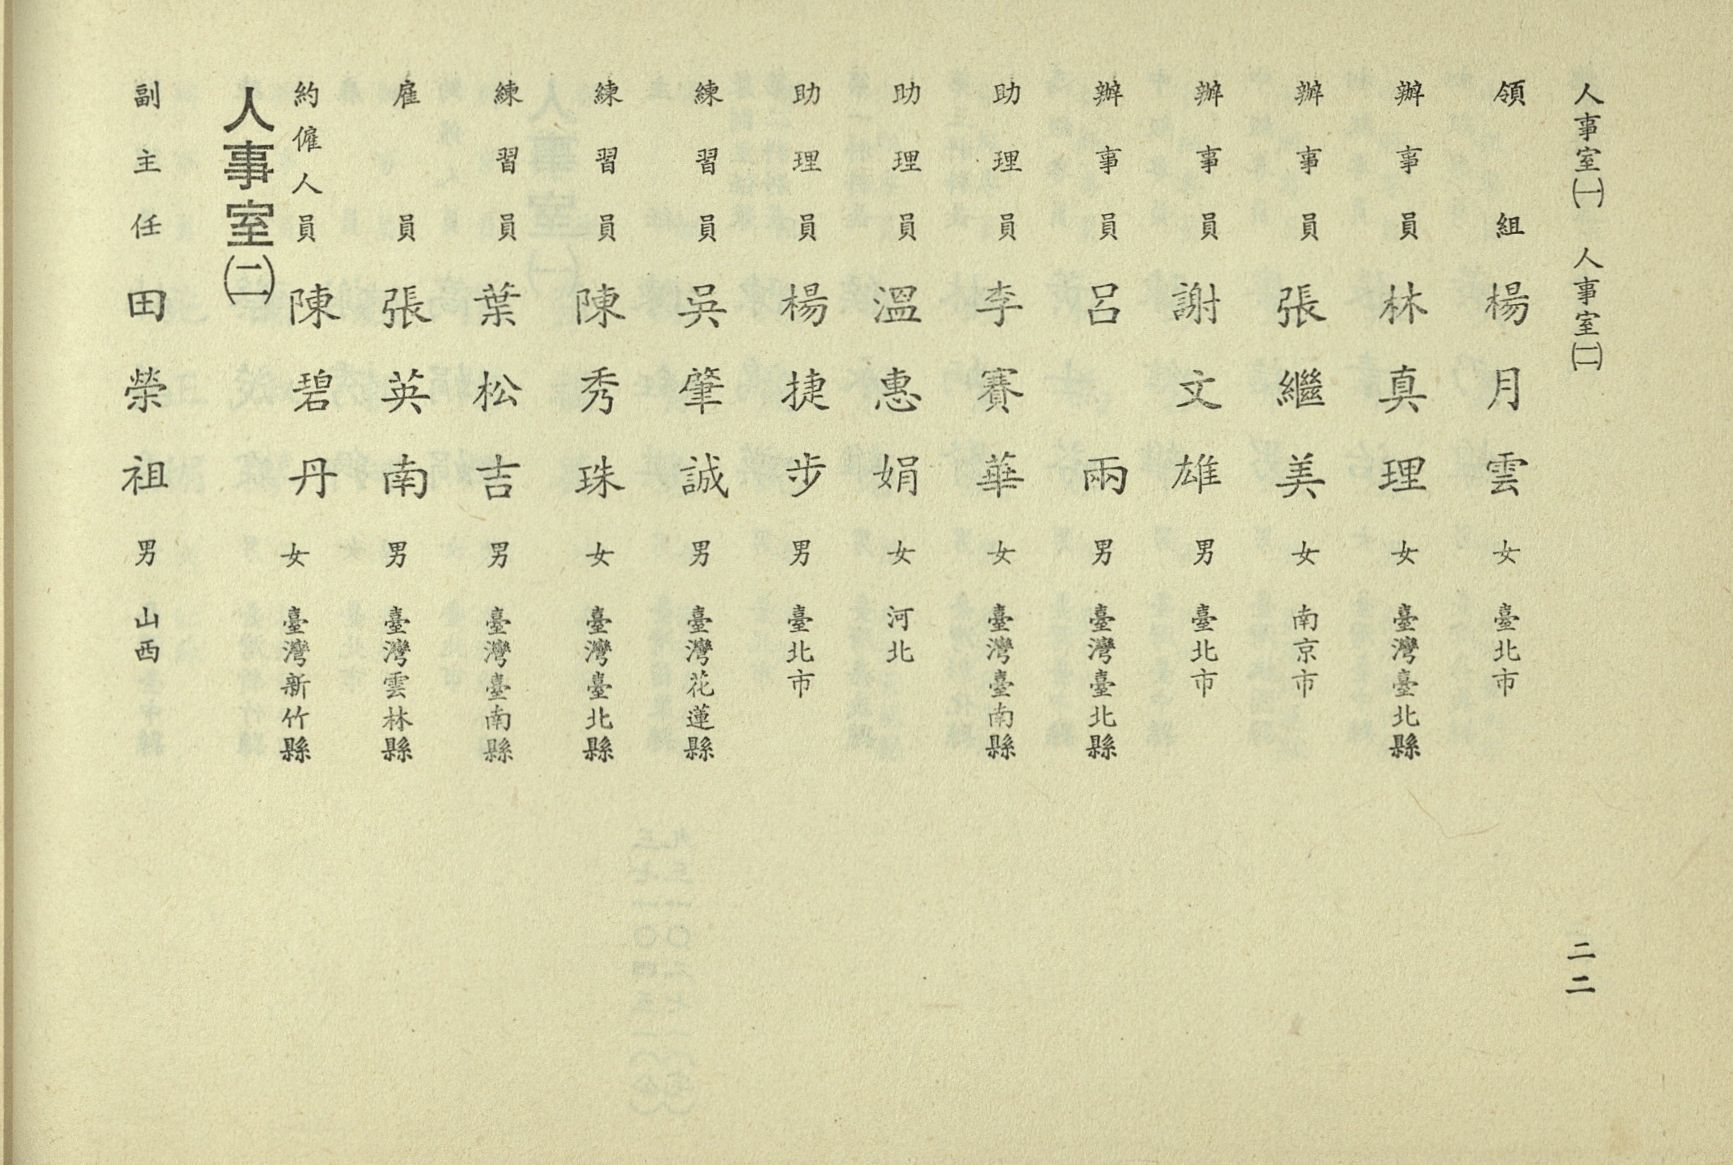 人事室㈠　人事室㈡　二二
領組　楊月雲　女　臺北市
辦事員　林真理　女　臺灣臺北縣
辦事員　張繼美　女　南京市
辦事員　謝文雄　男　臺北市
辦事員　呂兩　男　臺灣臺北縣
助理員　李賽華　女　臺灣臺南縣
助理員　溫惠娟　女　河北
助理員　楊捷步　男　臺北市
練習員　吳肇誠　男　臺灣花蓮縣
練習員　陳秀珠　女　臺灣臺北縣
練習員　葉松吉　男　臺灣臺南縣
雇員　張英南　男　臺灣雲林縣
約僱人員　陳碧丹　女　臺灣新竹縣
人事室㈡
副主任　田榮祖　男　山西